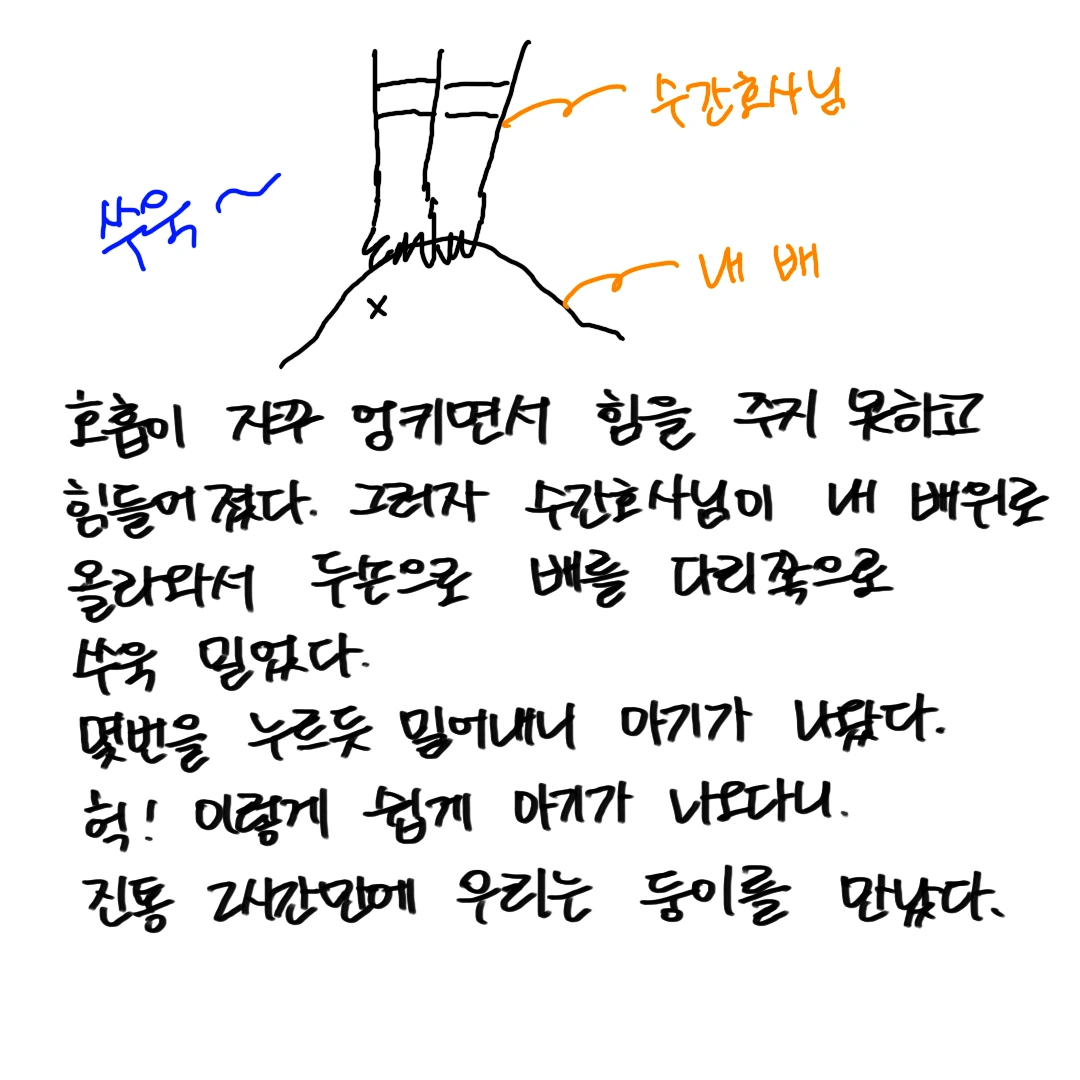 수간호사님
쑤욱~
내 배
호흡이 자꾸 엉키면서 힘을 주지 못하고
힘들어졌다. 그러자 수간호사님이 내 배위로
올라와서 두손으로 배를 다리쪽으로
쑤욱 밀었다.
몇번을 누르듯 밀어내니 아기가 나왔다.
헉! 이렇게 쉽게 아기가 나오다니.
진통 2시간만에 우리는 둥이를 만났다.